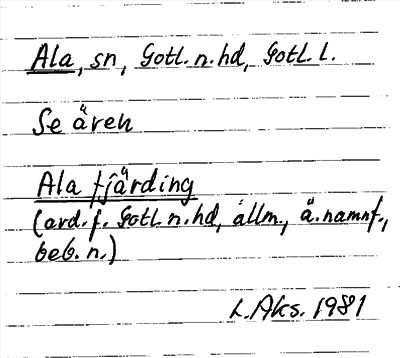 Ala, sn, Gotl. n. hd, Gotl. l.
Se även
Ala fjärding
(avd. f. Gotl. n. hd, allm., ä. namnf.,
beb. n.)
L. Aks. 1981